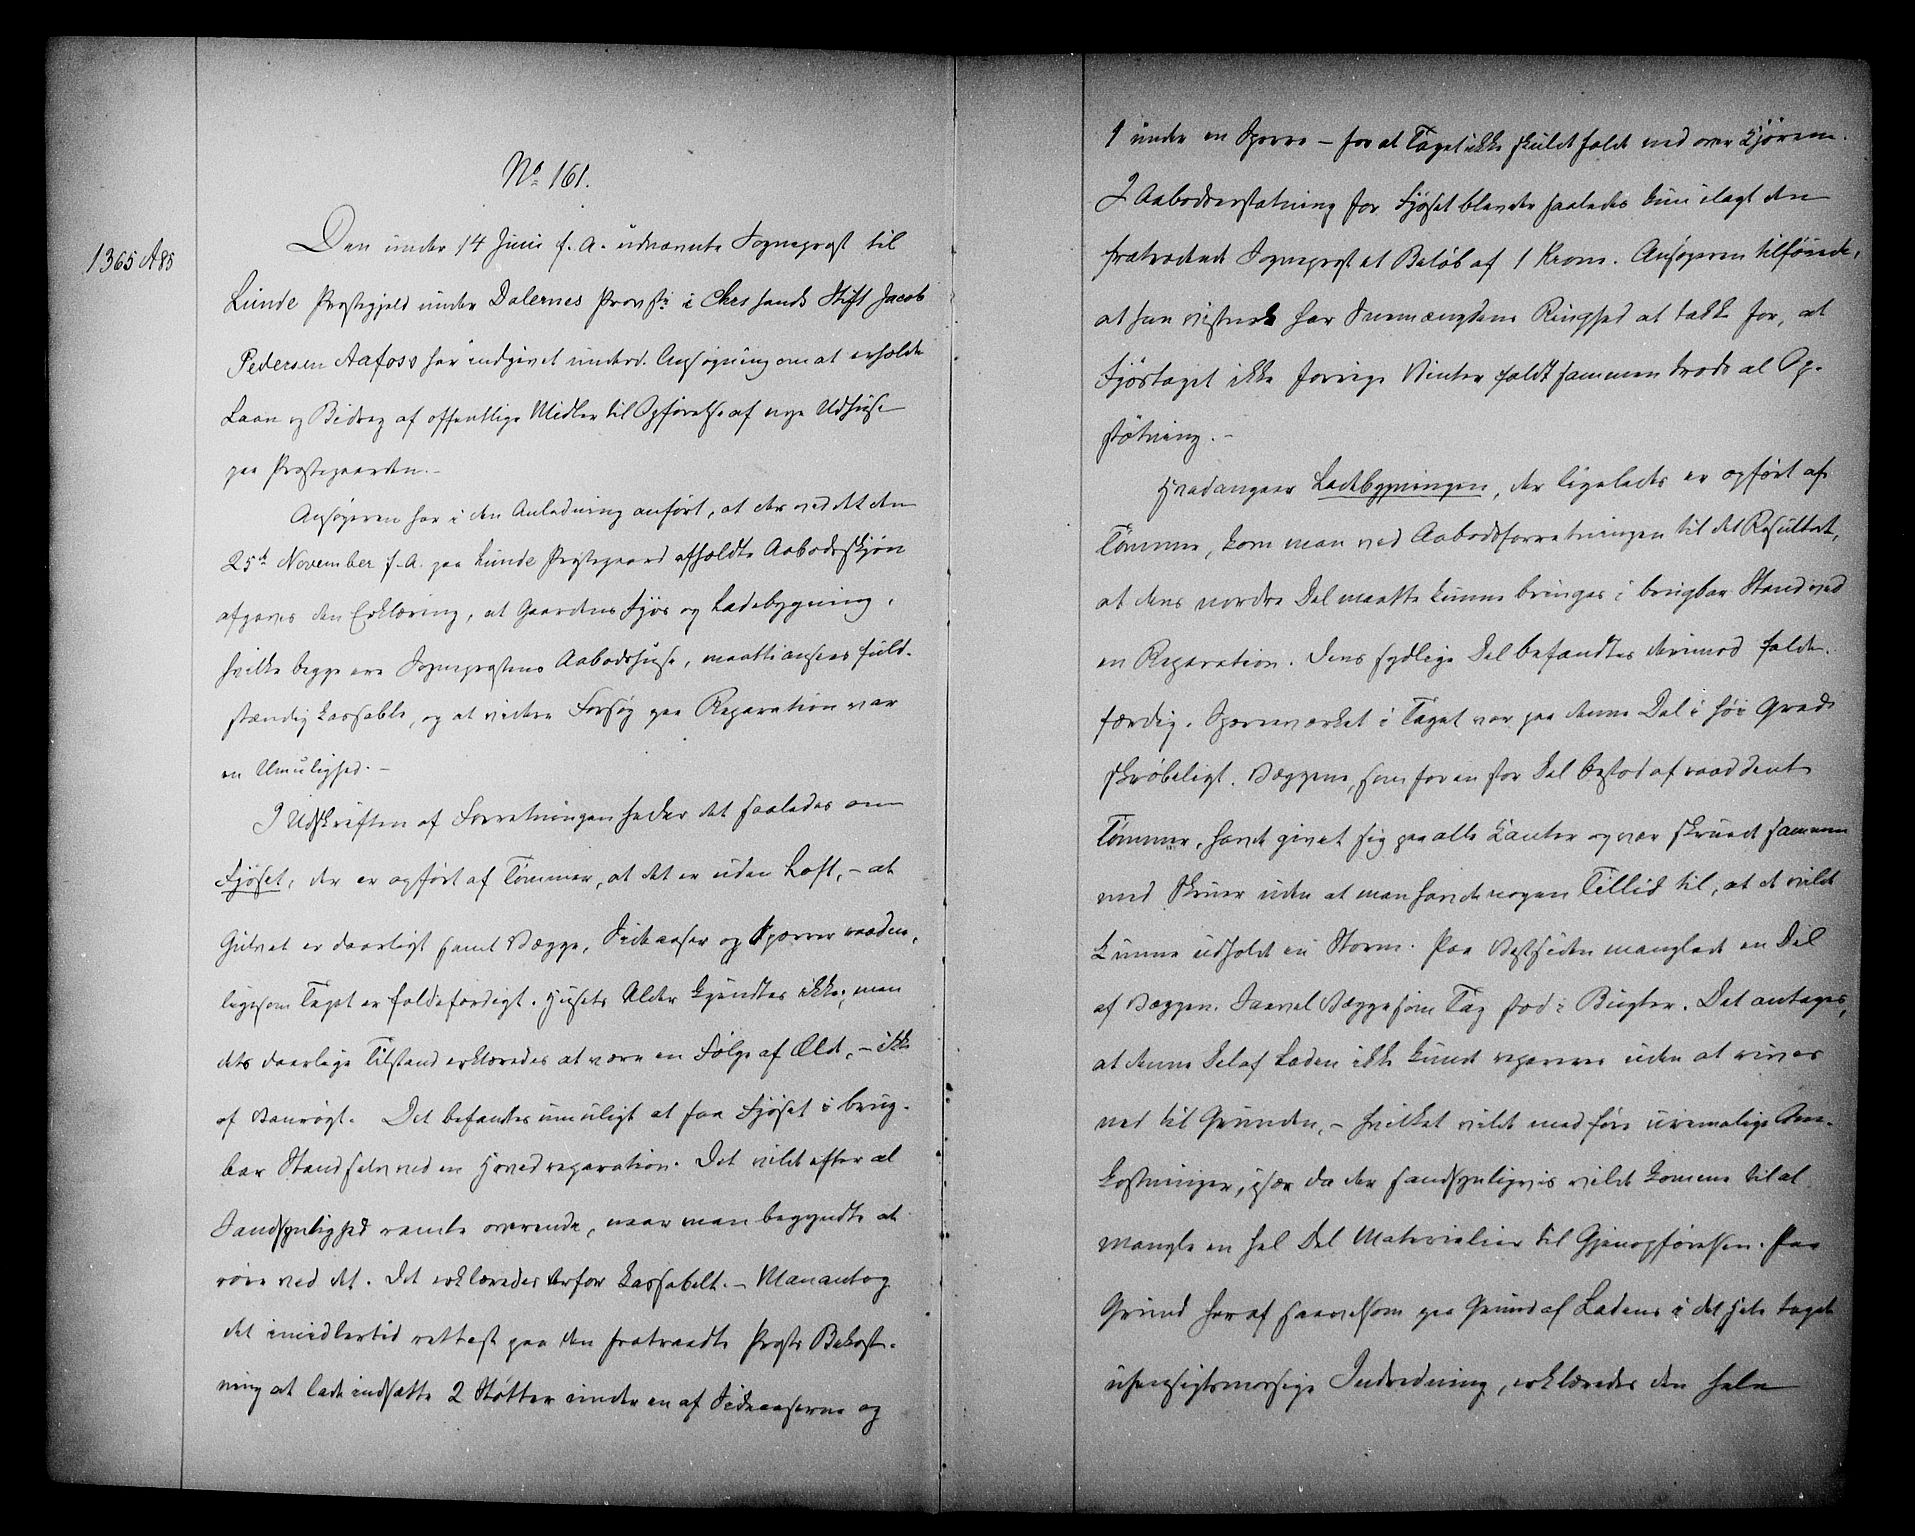 No 161.
1365 A 85
Den under 14 Juni f. A. udnævnte Sognepræst til
Lunde Præstegjeld under Dalernes Provsti i Chrssands Stift Jacob
Pedersen Aafoss har indgivet underd. Ansøgning om at erholde
Laan og Bidrag af offentlige Midler til Opførelse af nye Udhuse
paa Præstegaarden.-
Ansøgeren har i den Anledning anført, at der ved det den
25de November f. A. paa Lunde Præstegaard afholdte Aabodsskjøn
afgaves den Erklæring, at Gaardens Fjøs og Ladebygning,
hvilke begge ere Sognepræstens Aabodshuse, maatte ansees fuld-
stændig kassable, og at videre Forsøg paa Reparation var
en Umulighed.-
I Udskriften af Forretningen heder det saaledes om
Fjøset, der er opført af Tømmer, at det er uden Loft, - at
Gulvet er daarligt samt Vægge, Sideaaser og Sperrer raadne,
ligesom Taget er faldefærdigt. Husets Alder kjendtes ikke; men
dets daarlige Tilstand erklæredes at være en Følge af Ælde, - ikke
af Vanrøgt. Det befandtes umuligt at faa Fjøset i brug-
bar Stand selv ved en Hovedreparation. Det vilde efter al
Sandsynlighed ramle overende, naar man begyndte at
røre ved det. Det erklæredes derfor kassabelt. - Man antog
det imidlertid rettest paa den fratraadte Præsts Bekost-
ning at lade indsætte 2 Støtter under en af Sideaaserne og
1 under en Sperre - for at Taget ikke skulde falde ned over Kjørene.
I Aabodserstatning for Fjøset blev der saaledes kun ilagt den
fratrædende Sognepræst et Beløb af 1 Krone. Ansøgeren tilføiede,
at han vistnok har Snemængdens Ringhed at takke for, at
Fjøstaget ikke forrige Vinter faldt sammen trods al Op-
støtning.-
Hvad angaar Ladebygningen, der ligeledes er opført af
Tømmer, kom man ved Aabodsforretningen til det Resultat,
at dens nordre Del maatte kunne bringes i brugbar Stand ved
en Reparation. Dens sydlige Del befandtes derimod falde-
færdig. Sperreværket i Taget var paa denne Del i høi Grad
skrøbeligt. Væggene, som for en stor Del bestod af raaddent
Tømmer, havde givet sig paa alle Kanter og var skruede sammen
med Skruer uden at man havde nogen Tillid til, at de vilde
kunne udholde en Storm. Paa Vestsiden manglede en Del
af Væggen. Saavel Vægge som Tag stod i Bugter. Det antages,
at denne Del af Laden ikke kunde repareres uden at rives
ned til Grunden, - hvilket vilde medføre urimelige Om-
kostninger, især da der sandsynligvis vilde komme til at
mangle en hel Del Materialier til Gjenopførelsen. Paa
Grund heraf saavelsom paa Grund af Ladens i det Hele taget
uhensigtsmæssige Indredning, erklæredes den hele